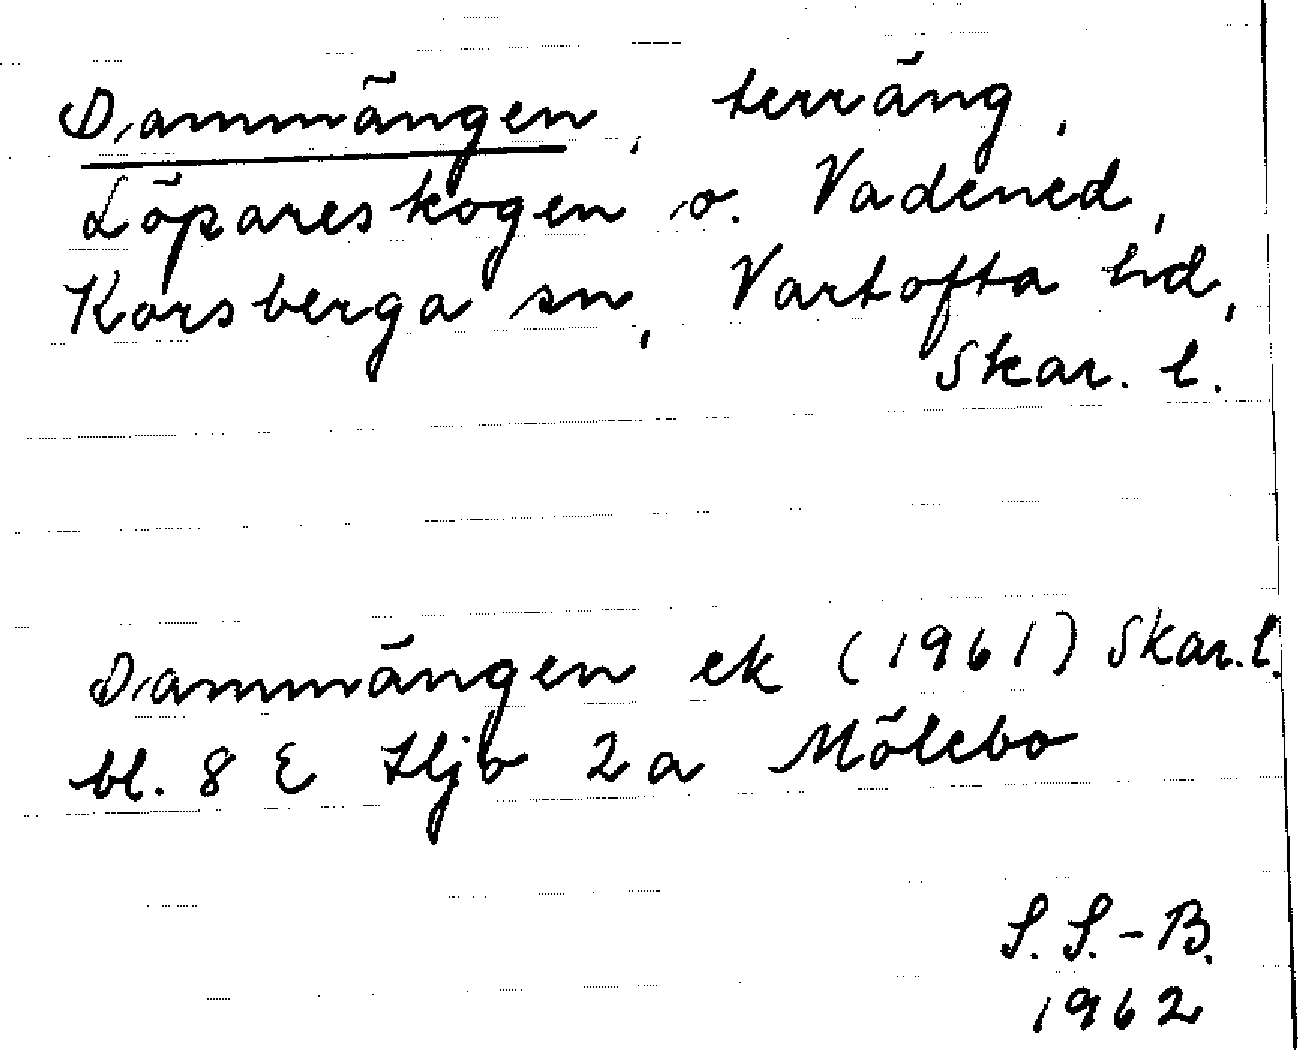 Dammängen, terräng,
Löpareskogen o. Vadened,
Korsberga sn, Vartofta hd,
Skar. l.
Dammängen ek (1961) Skar. l.
bl. 8 E Hjo 2 a Mölebo
S. S.-B.
1962